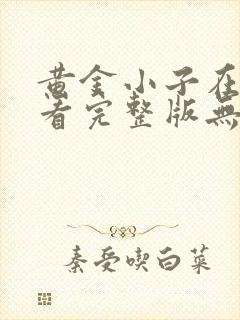 黄金小子在
看完整版無
秦受喫白菜